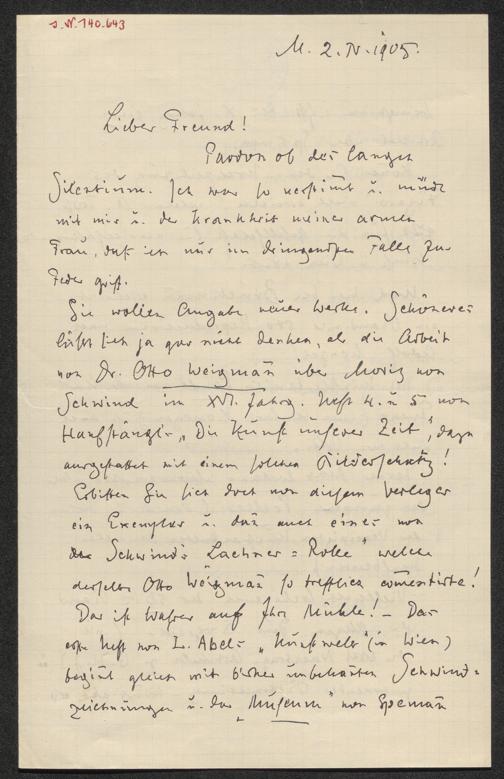 J.N. 140.643
M. 2. IV. 1905.
Lieber Freund!
Pardon ob des langen
Silentium. Ich war so verstimt u. müde
mit mir u. der Krankheit meiner armen
Frau, daß ich nur im dringendsten Falle zur
Feder griff.
Sie wollen Angabe neuer Werke. Schöneres
läßt sich ja gar nicht denken, als die Arbeit
von Dr. Otto Weigmañ über Moriz von
Schwind im XVI. Jahrg. Heft 4. u 5 von
Hanfstängls „Die Kunst unserer Zeit", dazu
ausgestattet mit einem solchen Bilderschatz!
Erbitten Sie sich doch von diesem Verleger
ein Exemplar u. dañ auch eines von
Schwind's Lachner=Rolle" welche
derselbe Otto Weigmañ so trefflich comentirte!
Das ist Wasser auf Ihre Mühle! – Das
erste Heft von L. Abels „Kunstwelt" (in Wien)
begiñt gleich mit bisher unbekañten Schwind=
zeichnungen u. das „Museum" von Spemañ